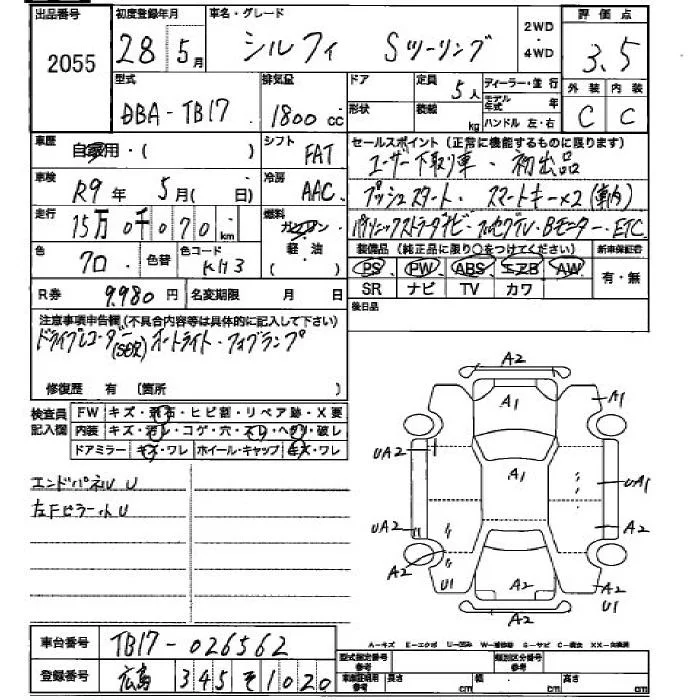 出品番号 初度登録年月 車名・グレード 2WD・4WD 評価点
2055 28年 5月 シルフィ Sツーリング 3.5
型式 排気量 ドア 定員 5人 ディーラー・並行 外装 内装
DBA-TB17 1800cc 形状 積載 kg モデル年式 年 ハンドル 左・右 C C
車歴 自家用・( ) シフト FAT セールスポイント(正常に機能するものに限ります)
ユーザー下取り車・初出品
車検 R9年 5月( 日) 冷房 AAC プッシュスタート・スマートキー×2(車内)
走行 15万0千070km 燃料 ガソリン・軽油 パナソニックストラーダナビ・フルセグTV・Bモニター・ETC
色 クロ 色替 色コード KH3 装備品(純正品に限り○をつけてください) 新車保証書
PS PW ABS エアB AW 有・無
R券 9,980円 名変期限 月 日 SR ナビ TV カワ
注意事項申告欄(不具合内容等は具体的に記入して下さい) 後日品
ドライブレコーダー(SD欠)オートライト・フォグランプ
修復歴 有(箇所 )
検査員記入欄 FW キズ・飛石・ヒビ割・リペア跡・X要
内装 キズ・汚レ・コゲ・穴・スレ・ヘタリ・破レ
ドアミラー キズ・ワレ ホイール・キャップ キズ・ワレ
エンドパネルU U
左Fピラー小U
A2
A1 A1
UA2 A1 UA1
UA2 A2
A2 A2 A2 U1
U1 A2
車台番号 TB17-026562
A-キズ E-エクボ U-凹ミ W-補修跡 S-サビ C-腐食 XX-交換済
登録番号 広島 345 そ 1020
型式指定番号 参考 類別区分番号 参考
車車証明用 参考 長さ cm 幅 cm 高さ cm